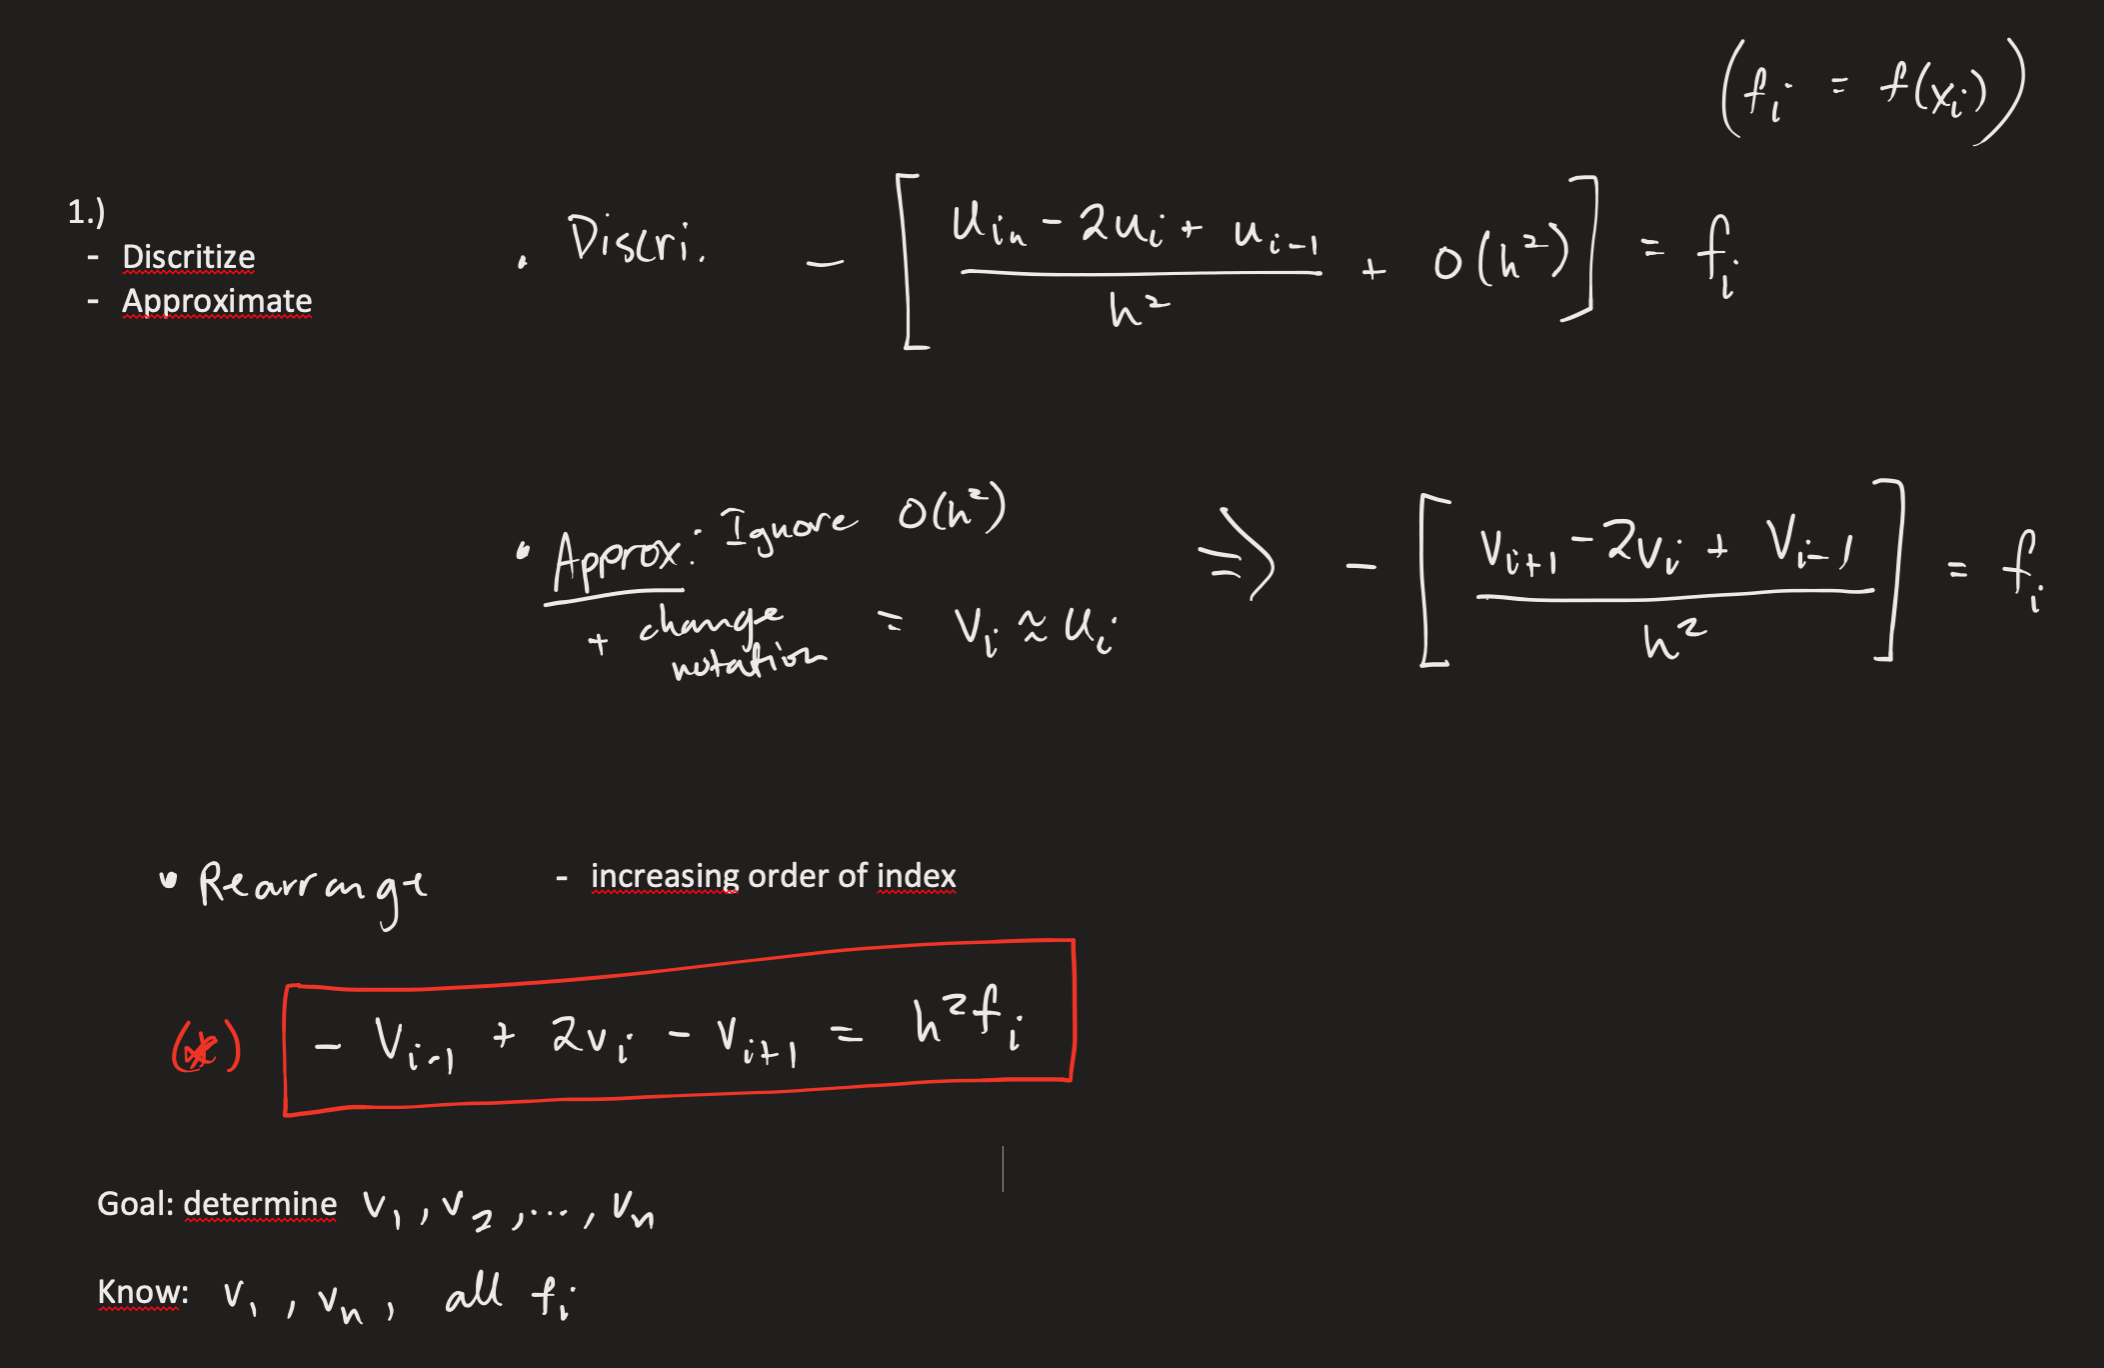 (fᵢ = f(xᵢ))
1.)
- Discritize
- Approximate
• Discri. - [ (uᵢₙ - 2uᵢ + uᵢ₋₁) / h² + O(h²) ] = fᵢ
• Approx: Ignore O(h²)
+ change notation = vᵢ ≈ uᵢ
⇒ - [ (vᵢ₊₁ - 2vᵢ + vᵢ₋₁) / h² ] = fᵢ
• Rearrange - increasing order of index
(*) - vᵢ₋₁ + 2vᵢ - vᵢ₊₁ = h²fᵢ
Goal: determine v₁, v₂, ..., vₙ
Know: v₁, vₙ, all fᵢ